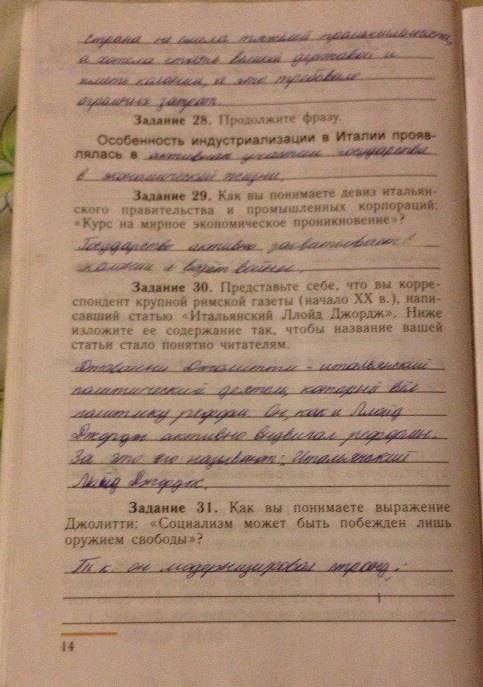 страна не имела тяжёлой промышленности,
а хотела стать великой державой и
иметь колонии, а это требовало
огромных затрат.
Задание 28. Продолжите фразу.
Особенность индустриализации в Италии прояв-
лялась в активном участии государства
в экономической жизни.
Задание 29. Как вы понимаете девиз итальян-
ского правительства и промышленных корпораций:
«Курс на мирное экономическое проникновение»?
Государство активно захватывает
колонии и ведёт войны.
Задание 30. Представьте себе, что вы корре-
спондент крупной римской газеты (начало XX в.), напи-
савший статью «Итальянский Ллойд Джордж». Ниже
изложите ее содержание так, чтобы название вашей
статьи стало понятно читателям.
Джованни Джолитти - итальянский
политический деятель, который вёл
политику реформ. Он, как и Ллойд
Джордж активно выдвигал реформы.
За это его называют: Итальянский
Ллойд Джордж.
Задание 31. Как вы понимаете выражение
Джолитти: «Социализм может быть побежден лишь
оружием свободы»?
Т.к. он модернизировал страну.
14